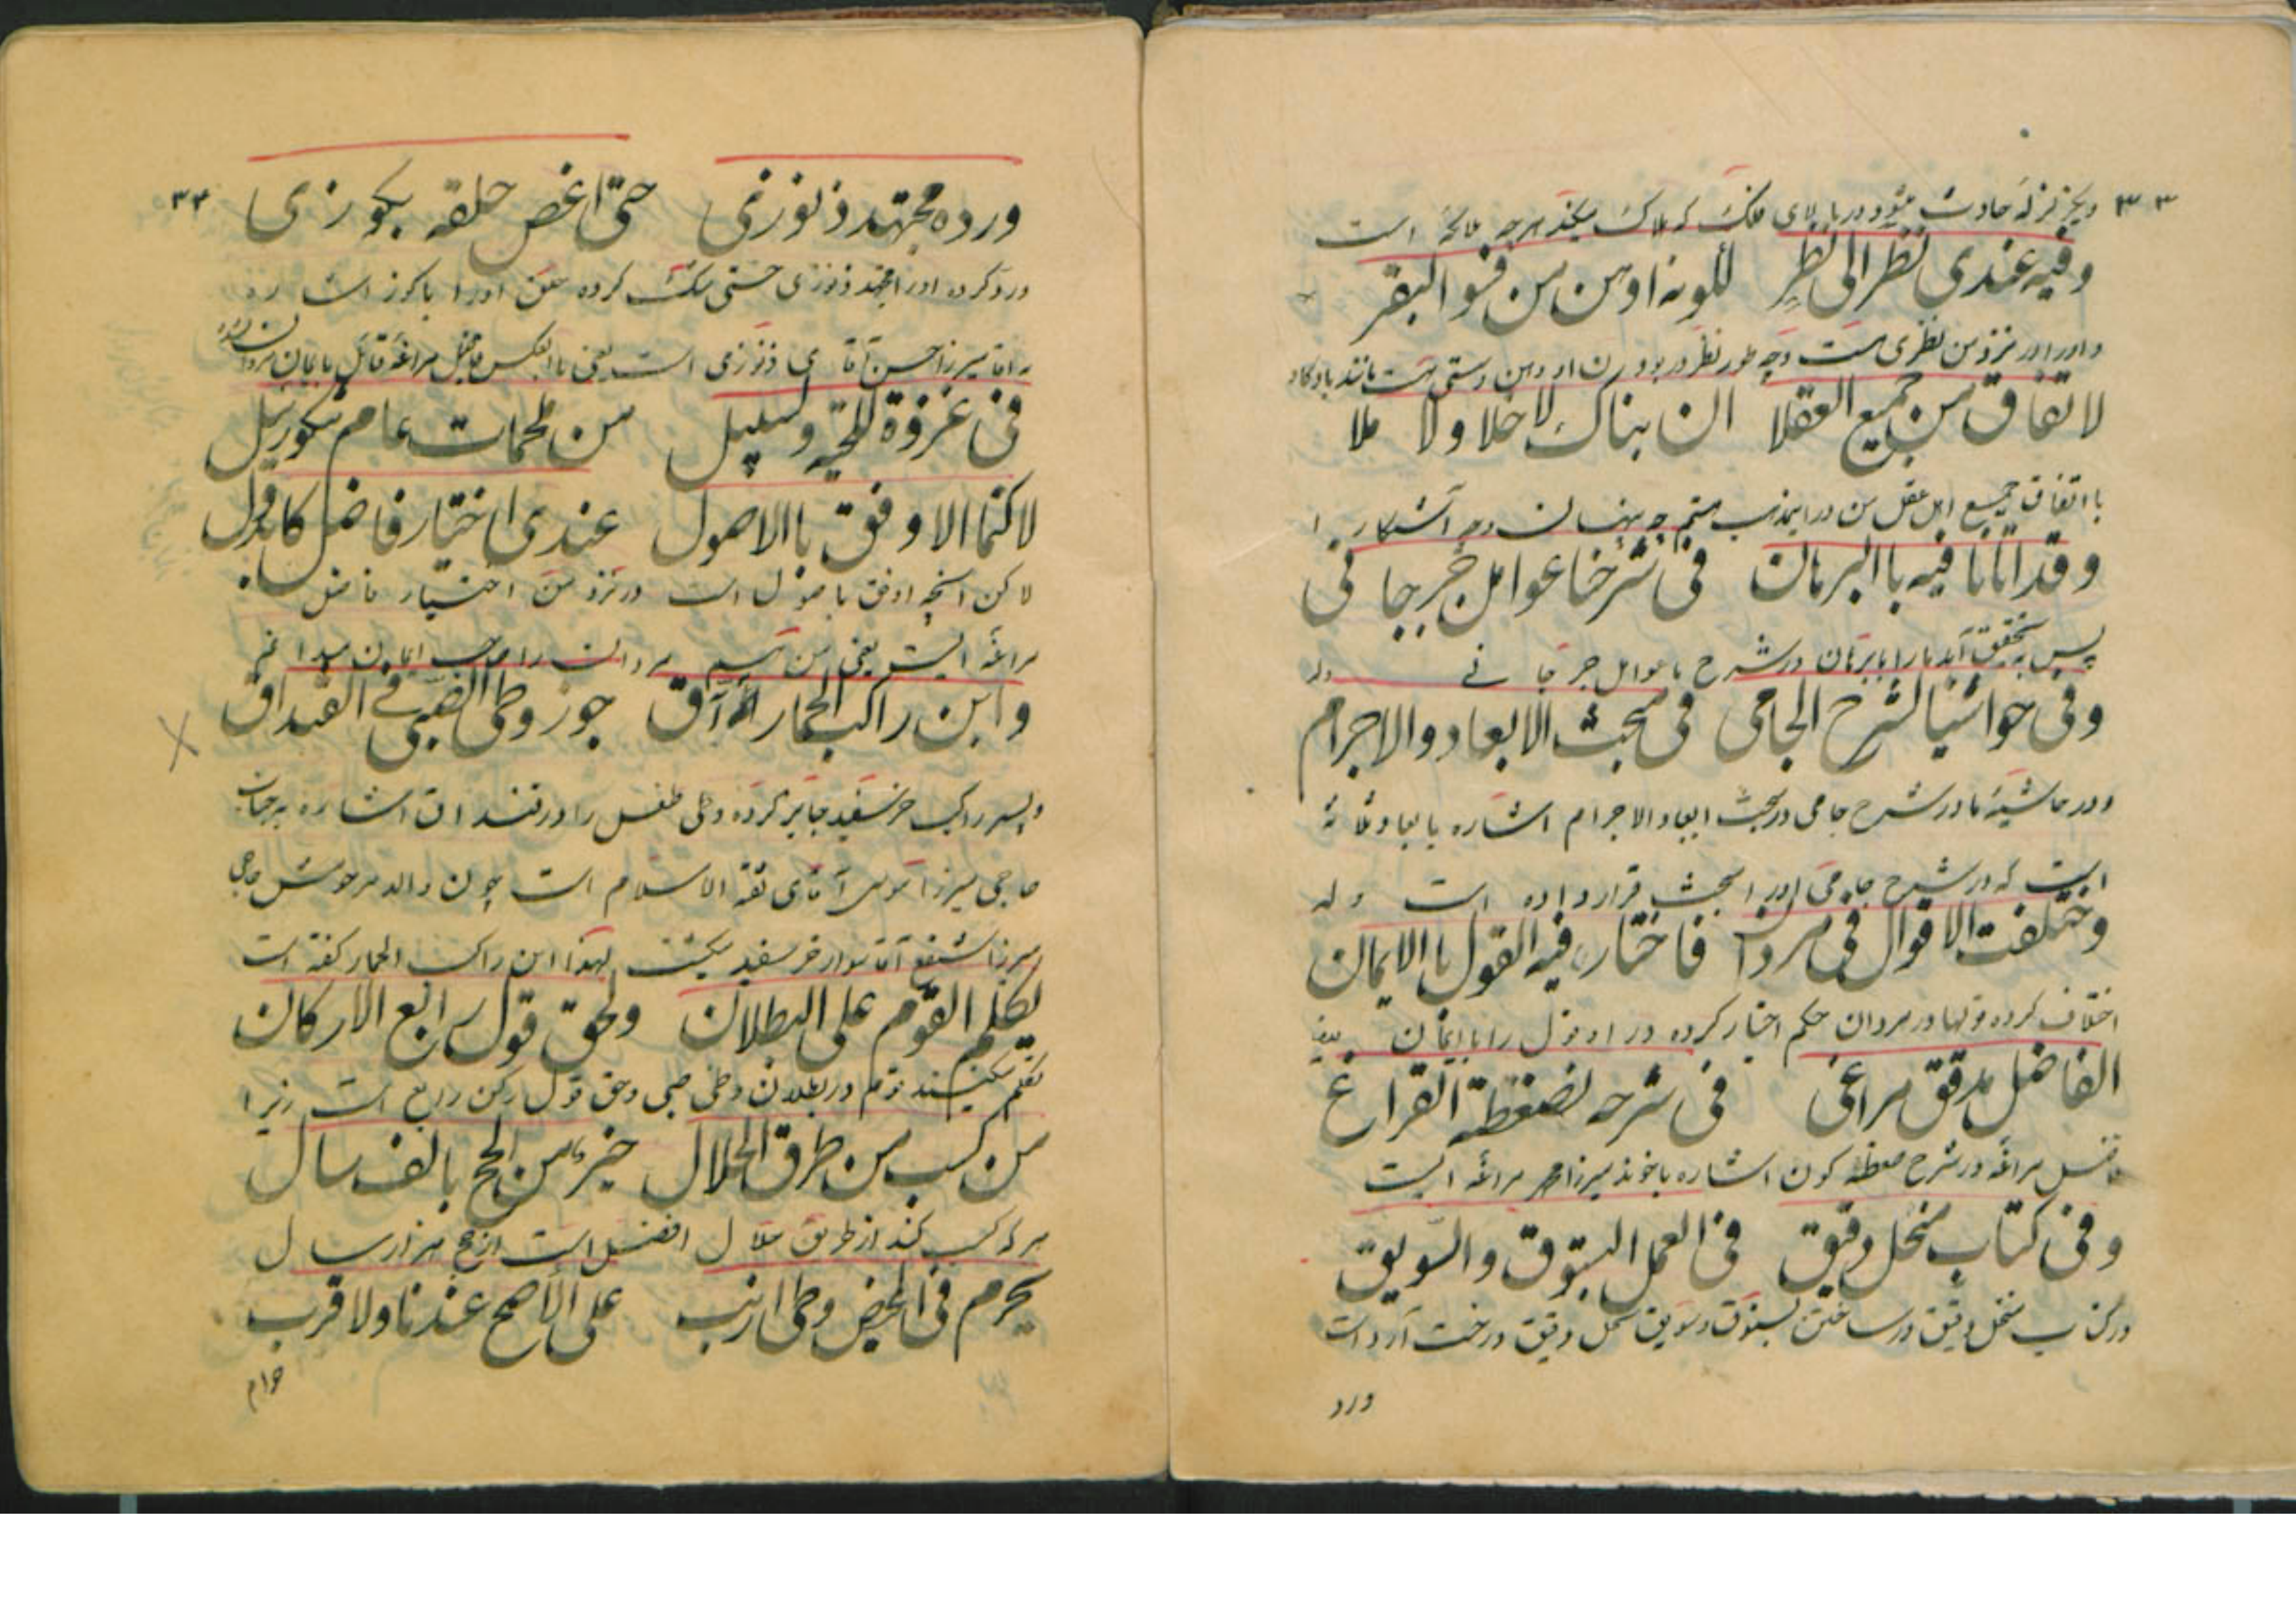 ۳۳ دیگر نزله حادث میشود در بالای فلک که هلاک میکند هرچه ملائکه است
وفیه عندی نظر الی نظر للونه اوهن من فسو البقر
و او را در نزد من نظری هست وجه طور نظر در بودن او وهن و سستی هست مانند باد گاو
لا تفاق من جمیع العقلا ان هناک لا خلا ولا ملا
با اتفاق جمیع اهل عقل من در اینمذهب هستم چه پنهان و چه آشکارا
وقد اتانا فیه باالبرهان فی شرحنا عوامل جرجانی
پس به تحقیق آید ما را با برهان در شرح ما عوامل جرجانی وله
وفی حواشینا لشرح الجامی فی مبحث الابعاد والاجرام
ودر حاشیهٔ ما در شرح جامی در مبحث ابعاد والاجرام اشاره بابعاد ثلاثه
است که در شرح جامی او را مبحث قرار داده است وله
وختلفت الاقوال فی مردان فاختار فیه القول باالایمان
اختلاف کرده قولها در مردان حکم اختیار کرده در او قول را با ایمان
الفاضل مدقق مراغی فی شرحه لضغظة القراغ
فاضل مراغه در شرح ضغظه کون اشاره باخوند میرزا مراغه ایست
وفی کتاب منخل دقیق فی العمل البستوق والسویق
در کتاب منخل دقیق در ساختن بستوق وسویق منخل دقیق درخت آرد است
ورد
ورده مجتهد ذنوزی حتی اغص حلقه بکوزی ۳۴
ورد کرده او را مجتهد ذنوزی حتی تنگ کرده حلق او را با کوز اشاره
به اقا میرزا حسن آقای ذنوزی است یعنی باالعکس فاضل مراغه قائل با یمان مردان
فی غزوة للحیه وسبیل من طحمات عام سکوزیل
لاکنما الاوفق باالاصول عندی اختیار فاضل کامل
لاکن آنچه اوفق باصول است در نزد من اختیار فاضل
مراغه ایست یعنی من هم مردان را صاحب ایمان میدانم
وابن راکب الحمار آق جوز وطی الصبی فی القنداق
وپسر راکب خر سفید جایز کرده وطی طفل را در قنداق اشاره به جناب
حاجی میرزا موسی آقای ثقة الاسلام است چون والد مرحومش حاجی
میرزا شفیع آقا سوار خر سفید میکشت لهذا ابن راکب الحمار گفته است
تکلم القوم علی البطلان ولحق قول رابع الارکان
تکلم میکنند قوم در بطلان وطی صبی وحق قول رکن رابع است زیرا
من کسب من طرق الحلال خیر من الحج بالف سال
هر که کسب کند از طریق حلال افضل است از حج هزار سال
یحرم فی الحیض وطی ارنب علی الاصح عندنا ولا قرب
حرام